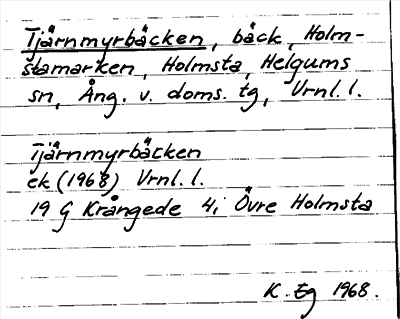 Tjärnmyrbäcken, bäck, Holm-
stamarken, Holmsta, Helgums
sn, Ång. v. doms. tg, Vrnl. l.
Tjärnmyrbäcken
ek (1968) Vrnl. l.
19 G Krångede 4i Övre Holmsta
K. Eg 1968.